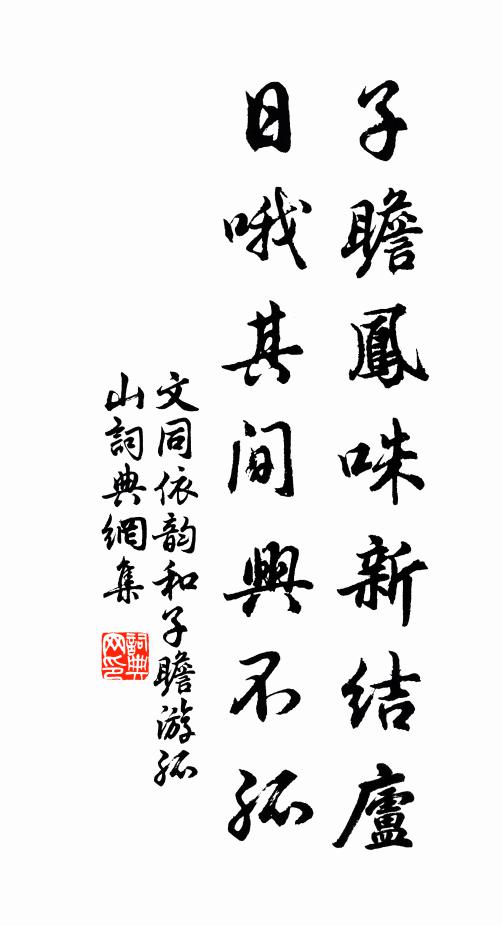 子瞻鳳咮新結廬
日哦其間興不孤
文同依韵和子瞻游孤
山詞典網集
詞典网印